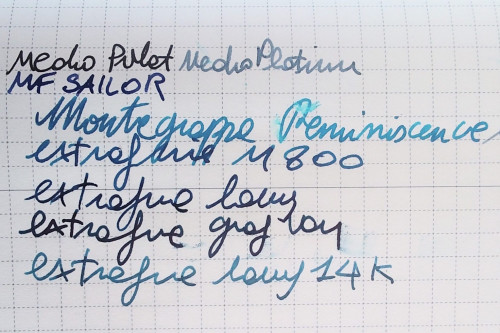 Medio Pilot Medio Platinum
MF SAILOR
Montegrappa Reminiscence
extrafine M800
extrafine lamy
extrafine graf lamy
extrafine lamy 14K